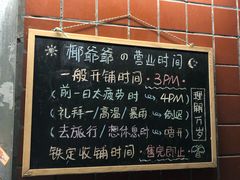 椰爷爷の营业时间
一般开铺时间·3PM·
(前一日太疲劳时 4PM)
(礼拜一/高温/暴雨 倒退)
(去旅行/想休息时 唔开)
铁定收铺时间·售完即止·
理解万岁